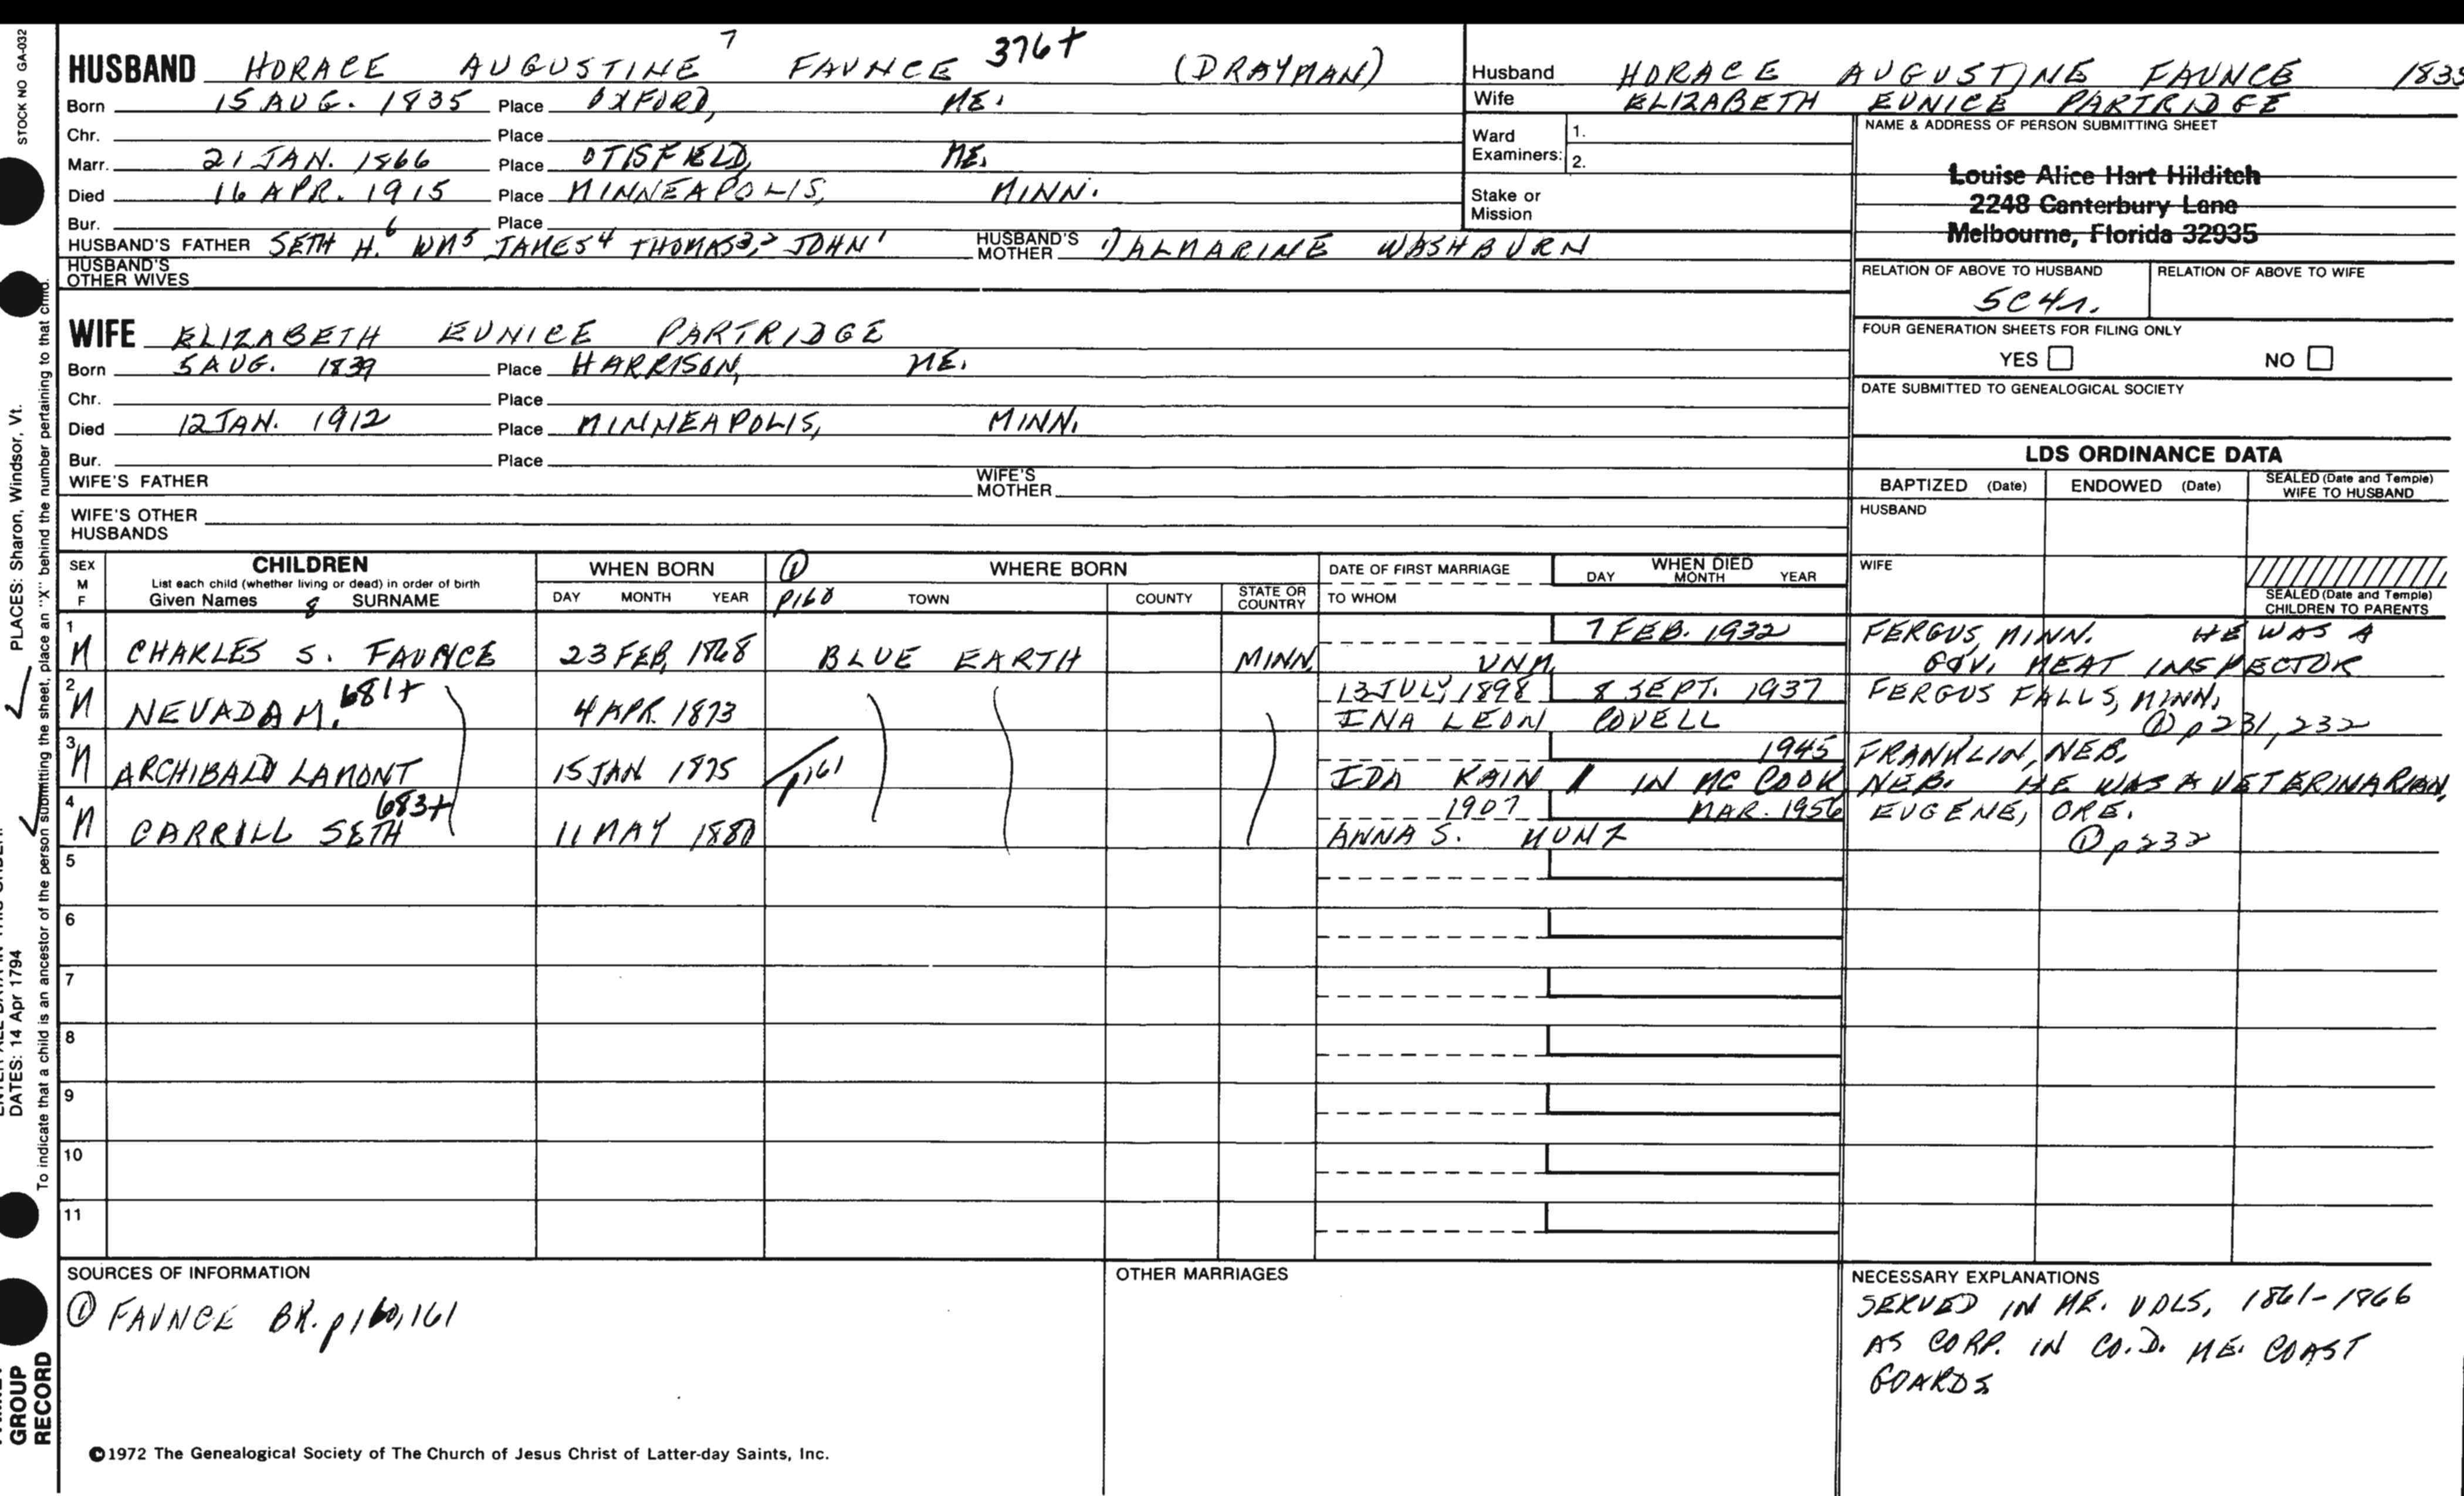 STOCK NO GA-032
HUSBAND HORACE AUGUSTINE 7 FAUNCE 376+ (DRAYMAN)
Born 15 AUG. 1835 Place OXFORD, ME.
Chr. Place
Marr. 21 JAN. 1866 Place OTISFIELD, ME.
Died 16 APR. 1915 Place MINNEAPOLIS, MINN.
Bur. Place
HUSBAND'S FATHER SETH H.6 WM5 JAMES4 THOMAS3,2 JOHN1 HUSBAND'S MOTHER WASHBURN
HUSBAND'S OTHER WIVES
Husband HORACE AUGUSTINE FAUNCE 1835
Wife ELIZABETH EUNICE PARTRIDGE
Ward Examiners: 1.
2.
Stake or Mission
NAME & ADDRESS OF PERSON SUBMITTING SHEET
Louise Alice Hart Hilditch
2248 Canterbury Lane
Melbourne, Florida 32935
RELATION OF ABOVE TO HUSBAND RELATION OF ABOVE TO WIFE
5C4r.
FOUR GENERATION SHEETS FOR FILING ONLY
YES NO
DATE SUBMITTED TO GENEALOGICAL SOCIETY
WIFE ELIZABETH EUNICE PARTRIDGE
Born 5 AUG. 1839 Place HARRISON, ME.
Chr. Place
Died 12 JAN. 1912 Place MINNEAPOLIS, MINN.
Bur. Place
WIFE'S FATHER WIFE'S MOTHER
WIFE'S OTHER HUSBANDS
LDS ORDINANCE DATA
BAPTIZED (Date) ENDOWED (Date) SEALED (Date and Temple) WIFE TO HUSBAND
HUSBAND
WIFE
SEALED (Date and Temple) CHILDREN TO PARENTS
SEX M F
CHILDREN
List each child (whether living or dead) in order of birth
Given Names 8 SURNAME
WHEN BORN
DAY MONTH YEAR
① p160
WHERE BORN
TOWN COUNTY STATE OR COUNTRY
DATE OF FIRST MARRIAGE
TO WHOM
WHEN DIED
DAY MONTH YEAR
1 M CHARLES S. FAUNCE 23 FEB. 1868 BLUE EARTH MINN. UNM. 7 FEB. 1932 FERGUS, MINN. HE WAS A
GOV. MEAT INSPECTOR
2 M NEVADA M. 681+ 4 APR. 1873 13 JULY, 1898 8 SEPT. 1937 FERGUS FALLS, MINN.
INA LEON COVELL ① p231,232
3 M ARCHIBALD LAMONT 15 JAN 1875 p161 1945 FRANKLIN, NEB.
IDA KAIN IN MC COOK NEB. HE WAS A VETERINARIAN.
4 M CARRILL SETH 683+ 11 MAY 1880 1907 MAR. 1956 EUGENE, ORE.
ANNA S. ① p232
5
6
7
8
9
10
11
SOURCES OF INFORMATION
① FAUNCE BK. p160,161
OTHER MARRIAGES
NECESSARY EXPLANATIONS
SERVED IN ME. VOLS, 1861-1866
AS CORP. IN CO.D. ME. COAST
GUARDS
PLACES: Sharon, Windsor, Vt.
DATES: 14 Apr 1794
To indicate that a child is an ancestor of the person submitting the sheet, place an "X" behind the number pertaining to that child.
GROUP
RECORD
©1972 The Genealogical Society of The Church of Jesus Christ of Latter-day Saints, Inc.